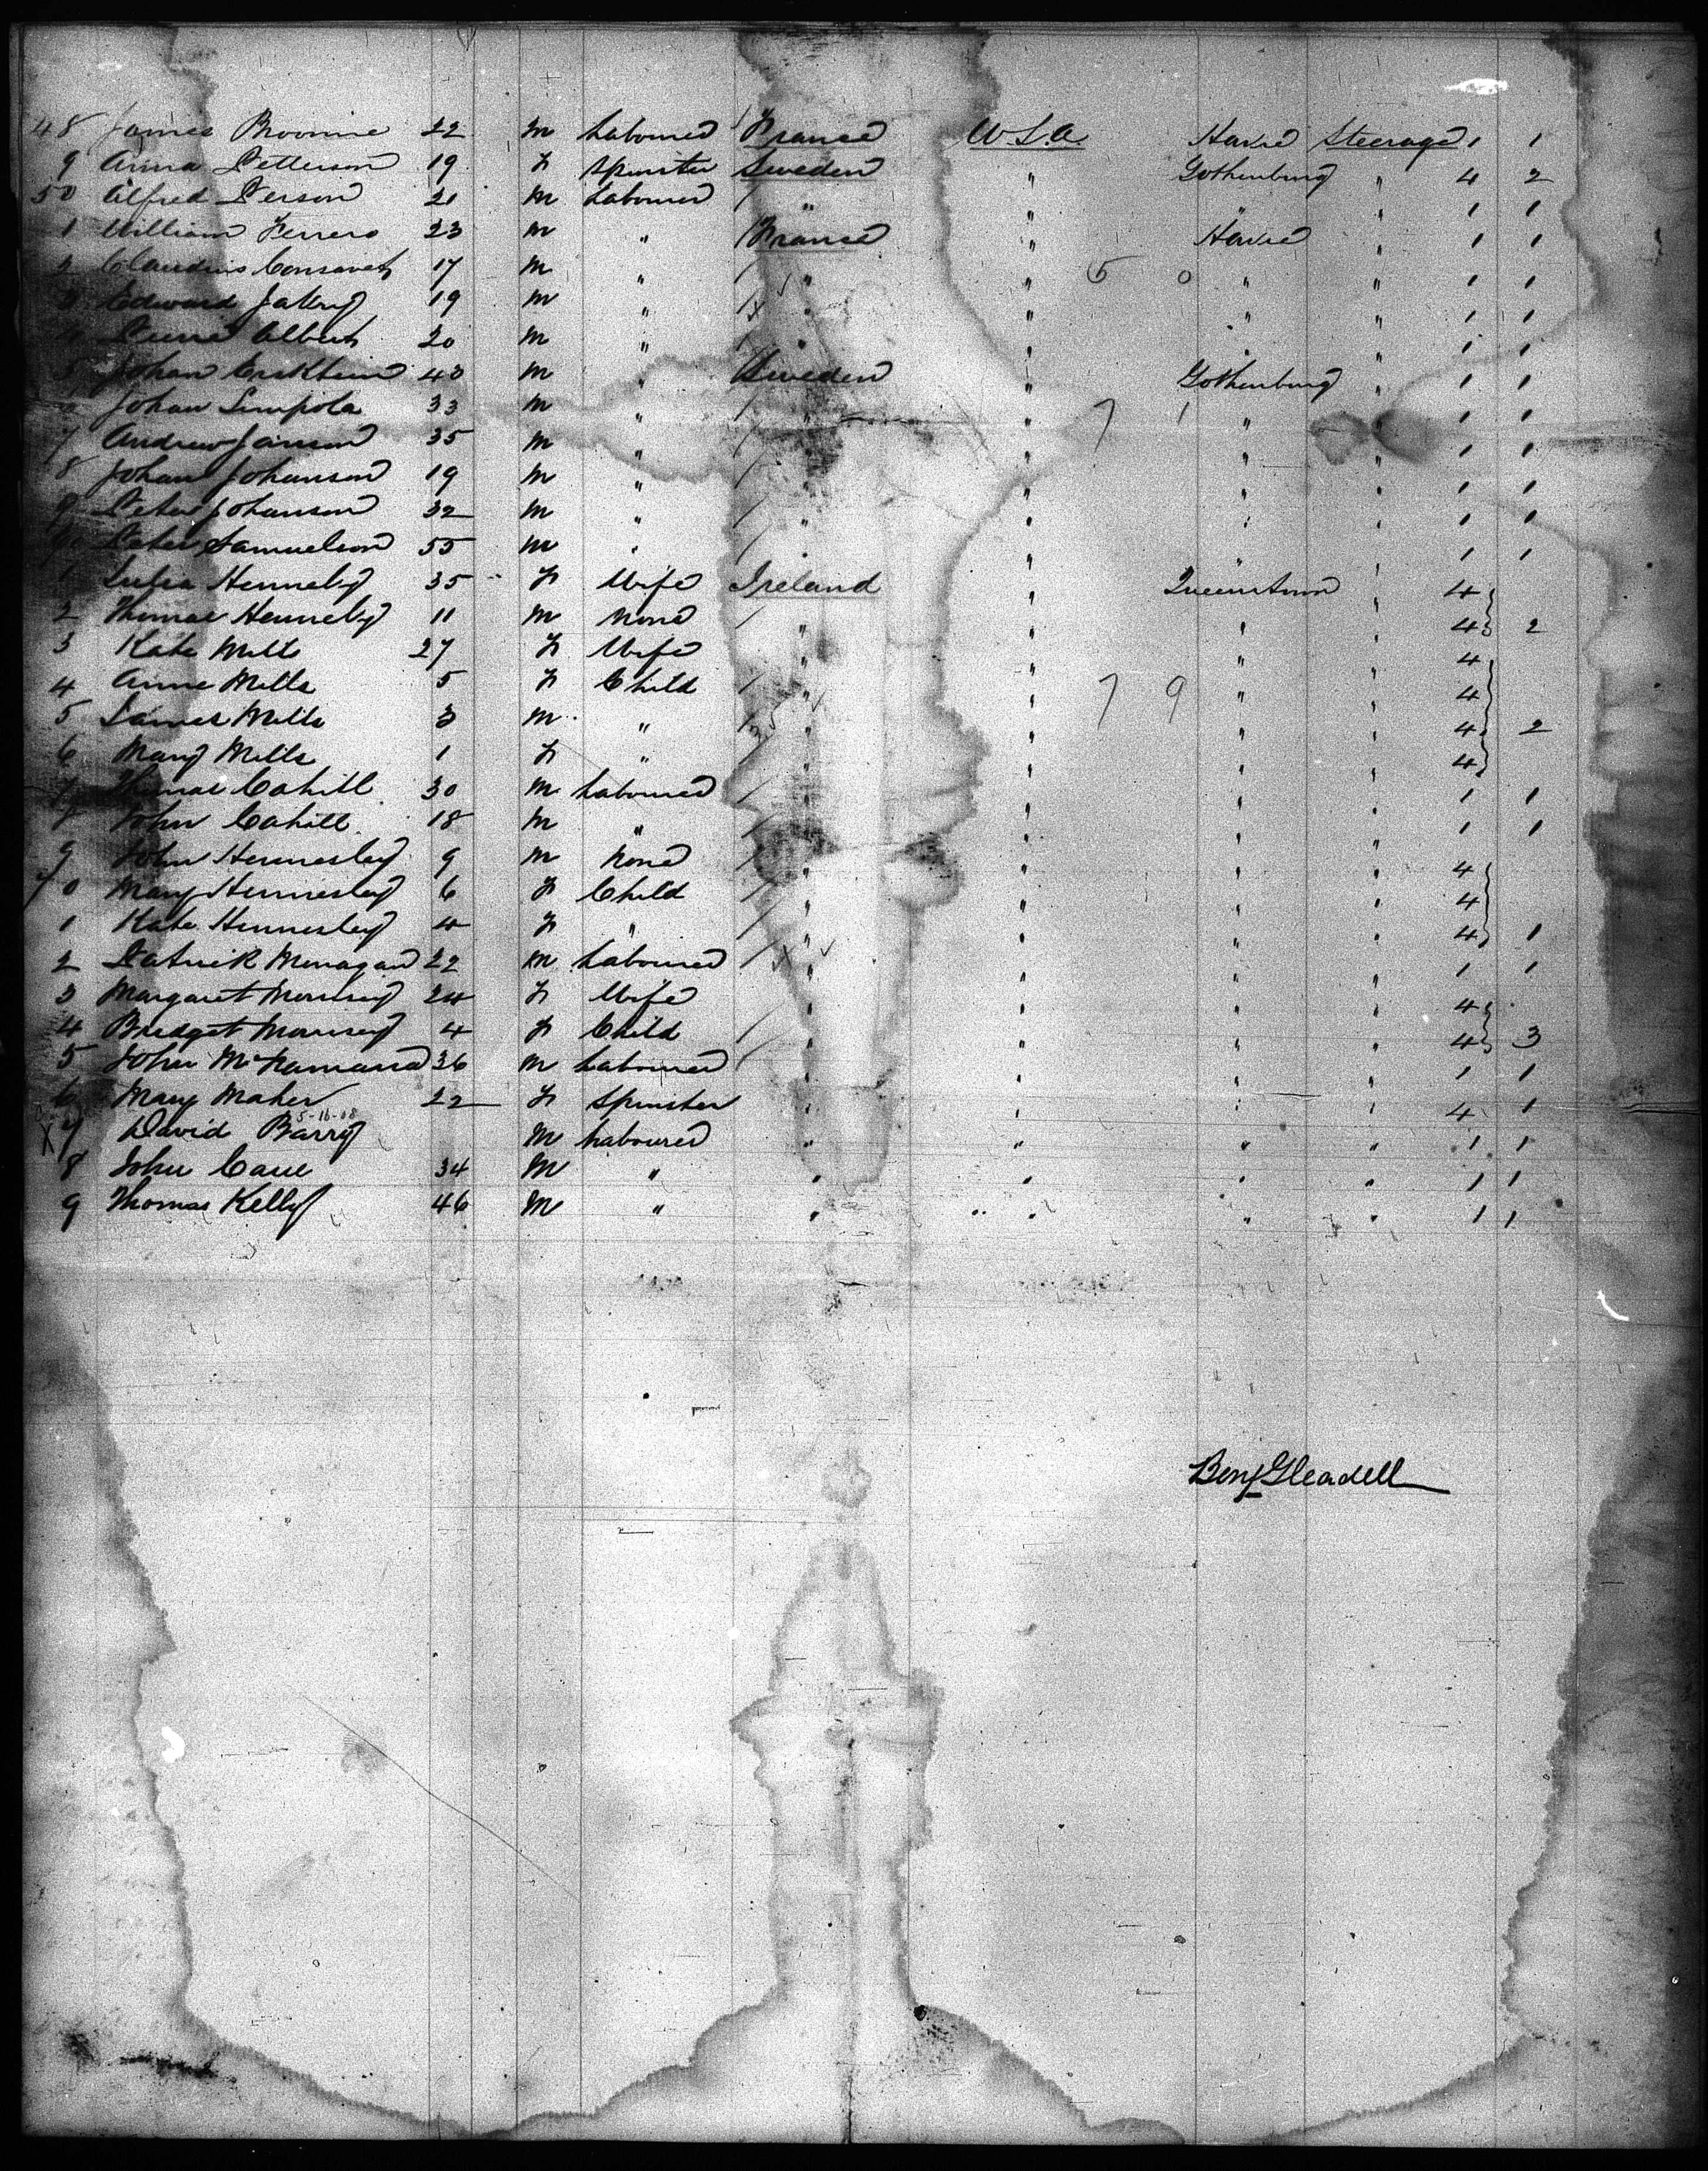 48 James 22 m Laboured France U.S.A. Havre Steerage 1 1
9 Anna Petterson 19 F Spinster Sweden " Gothenburg " 4 2
50 Alfred Person 21 m Laboured " " " " 1 1
1 William Ferrero 23 m " France " Havre " 1 1
2 Claudius 17 m " " " 5 0 " " 1 1
3 Edward 19 m " " " " " 1 1
4 Pierre Albert 20 m " " " " " 1 1
5 Johan 43 m " Sweden " Gothenburg " 1 1
6 Johan 33 m " " " 7 1 " " 1 1
7 Andrew Janson 35 m " " " " " 1 1
8 Johan Johanson 19 m " " " " " 1 1
9 Peter Johanson 32 m " " " " " 1 1
60 Peter Samuelson 55 m " " " " " 1 1
1 Julia Henneby 35 F Wife Ireland " Queenstown " 4
2 Thomas Henneby 11 m None " " " " 4 2
3 Kate Mills 27 F Wife " " " " 4
4 Anne Mills 5 F Child " " 7 9 " " 4
5 James Mills 3 m " " " " " 4 2
6 Mary Mills 1 F " " " " " 4
7 Thomas Cahill 30 m Laboured " " " " 1 1
8 John Cahill 18 m " " " " " 1 1
9 John Hennesley 9 m None " " " " 4
70 Mary Hennesley 6 F Child " " " " 4
1 Kate Hennesley 4 F " " " " " 4 1
2 Patrick Monagan 22 m Laboured " " " " 1 1
3 Margaret Morrisey 24 F Wife " " " " 4
4 Bridget Morrisey 4 F Child " " " " 4 3
5 John McNamara 36 m Laboured " " " " 1 1
6 Mary Maher 22 F Spinster " " " " 4 1
5-16-08
X 7 David Barry M Laboured " " " " 1 1
8 John 34 M " " " " " 1 1
9 Thomas Kelly 46 M " " " " " 1 1
Benj Gleadell